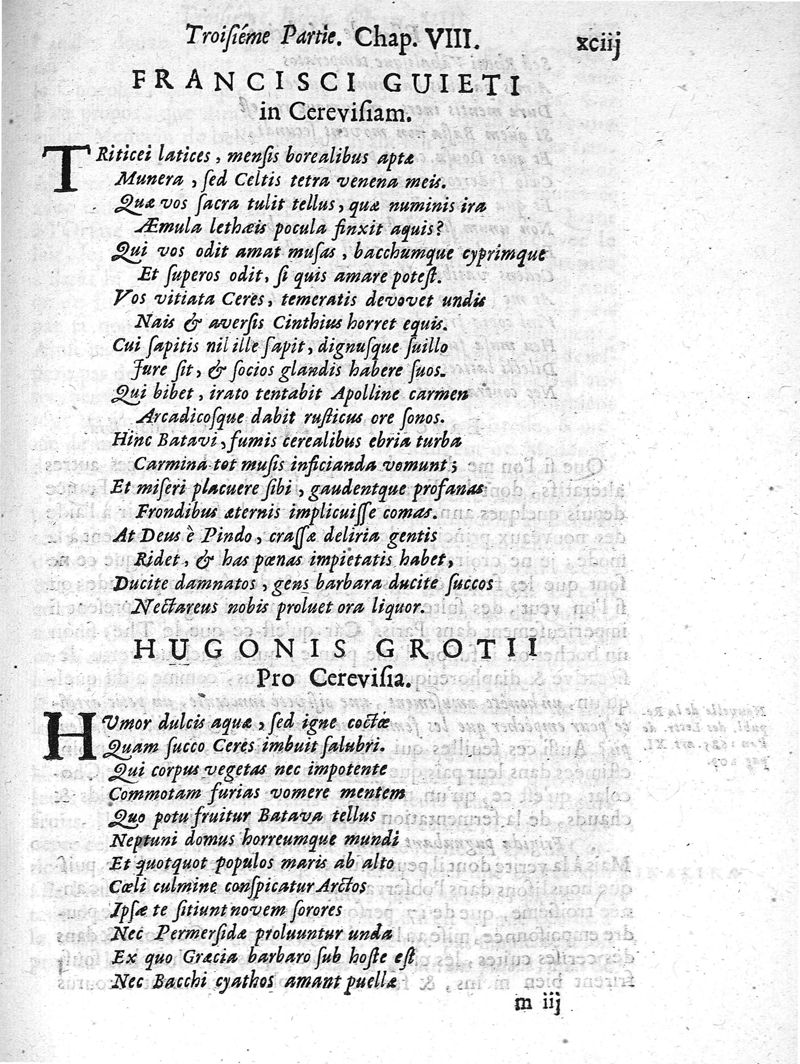 Troiſiéme Partie. Chap. VIII. xciij
FRANCISCI GUIETI
in Cereviſiam.
TRiticei latices, menſis borealibus aptæ
Munera, ſed Celtis tetra venena meis.
Quæ vos ſacra tulit tellus, quæ numinis ira
Æmula lethæis pocula finxit aquis?
Qui vos odit amat muſas, bacchumque cyprimque
Et ſuperos odit, ſi quis amare poteſt.
Vos vitiata Ceres, temeratis devovet undis
Nais & averſis Cinthius horret equis.
Cui ſapitis nil ille ſapit, dignuſque ſuillo
Jure ſit, & ſocios glandis habere ſuos.
Qui bibet, irato tentabit Apolline carmen
Arcadicoſque dabit ruſticus ore ſonos.
Hinc Batavi, fumis cerealibus ebria turba
Carmina tot muſis inficianda vomunt;
Et miſeri placuere ſibi, gaudentque profanas
Frondibus æternis implicuiſſe comas.
At Deus è Pindo, craſſæ deliria gentis
Ridet, & has pœnas impietatis habet,
Ducite damnatos, gens barbara ducite ſuccos
Nectareus nobis proluet ora liquor.
HUGONIS GROTII
Pro Cereviſia.
HVmor dulcis aquæ, ſed igne coctæ
Quam ſucco Ceres imbuit ſalubri.
Qui corpus vegetas nec impotente
Commotam furias vomere mentem
Quo potu fruitur Batava tellus
Neptuni domus horreumque mundi
Et quotquot populos maris ab alto
Cœli culmine conſpicatur Arctos
Ipſæ te ſitiunt novem ſorores
Nec Permerſidæ proluuntur unda
Ex quo Græcia barbaro ſub hoſte eſt
Nec Bacchi cyathos amant puellæ
m iij